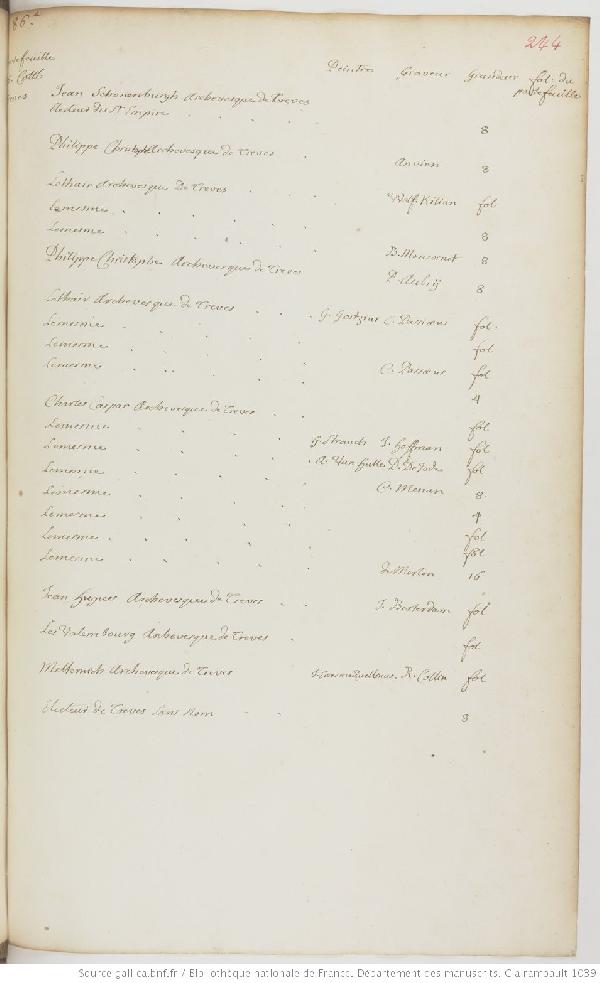 86.e
244
Peintre Graveur Grandeur fol. du portefeuille
Jean Schonenburgh Archevesque de Treves
Electeur du St Empire 8
Philippe Christophe Archevesque de Treves Anvien 8
Lothair Archevesque De Treves Wolf. Kilian fol
Lemesme 8
Lemesme B. Moncornet 8
Philippe Christophe Archevesque de Treves P. Aubry 8
Lothair Archevesque de Treves G. Gortzius C. Passaeus fol.
Lemesme fol
Lemesme C. Passaeus fol
Lemesme 4
Charles Caspar Archevesque de Treves fol
Lemesme G. Strauch J. Hoffman fol
Lemesme A. Van Hulle P. De Jode fol
Lemesme C. Merian 8
Lemesme 4
Lemesme fol
Lemesme fol
Lemesme J. Merlen 16
Jean Archevesque de Treves J. fol
Archevesque de Treves fol
Metternich Archevesque de Treves R. Collin fol
Electeur de Treves Sans Nom 8
Source gallica.bnf.fr / Bibliothèque nationale de France. Département des manuscrits. Clairambault 1039